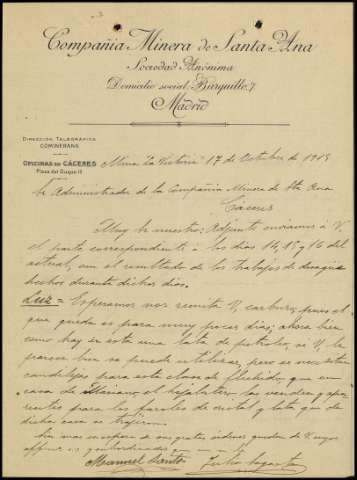 Compañía Minera de Santa Ana
Sociedad Anónima
Domicilio social: Barquillo, 7
Madrid
DIRECCIÓN TELEGRÁFICA
COMINERANA
OFICINAS DE CÁCERES
Plaza del Duque 11
Mina La Victoria 17 de Octubre de 1913
Sr. Administrador de la Compañía Minera de Sta Ana
Cáceres
Muy Sr. nuestro: Adjunto enviamos á V.
el parte correspondiente á los días 14, 15 y 16 del
actual, con el resultado de los trabajos de desagüe
hechos durante dichos días.
Luz = Esperamos nos remita V. carburo, pues el
que queda es para muy pocos días; ahora bien
como hay en esta una lata de petroleo, si á V. le
parece bien se puede utilizar, pero se necesitan
candilejas para esta clase de fluido, que en
casa de Mariano, el hojalatero las venden y apa-
rentes para los faroles de cristal y lata que de
dicha casa se trajeron.
Sin mas en espera de sus gratas ordenes quedan de V. suyos
affmos. y subordinados
Manuel Santos Julio